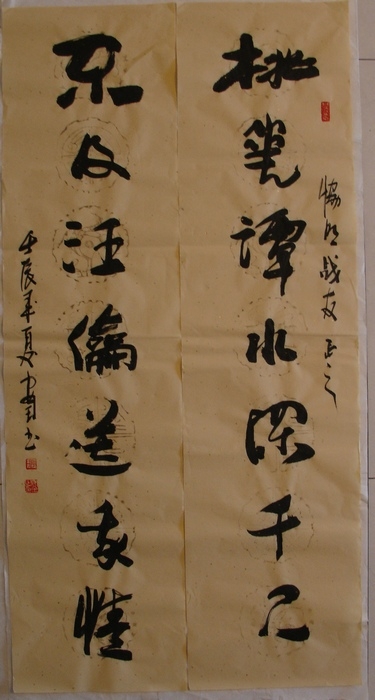 战友正之
桃花潭水深千尺
不及汪倫送我情
壬辰年夏书